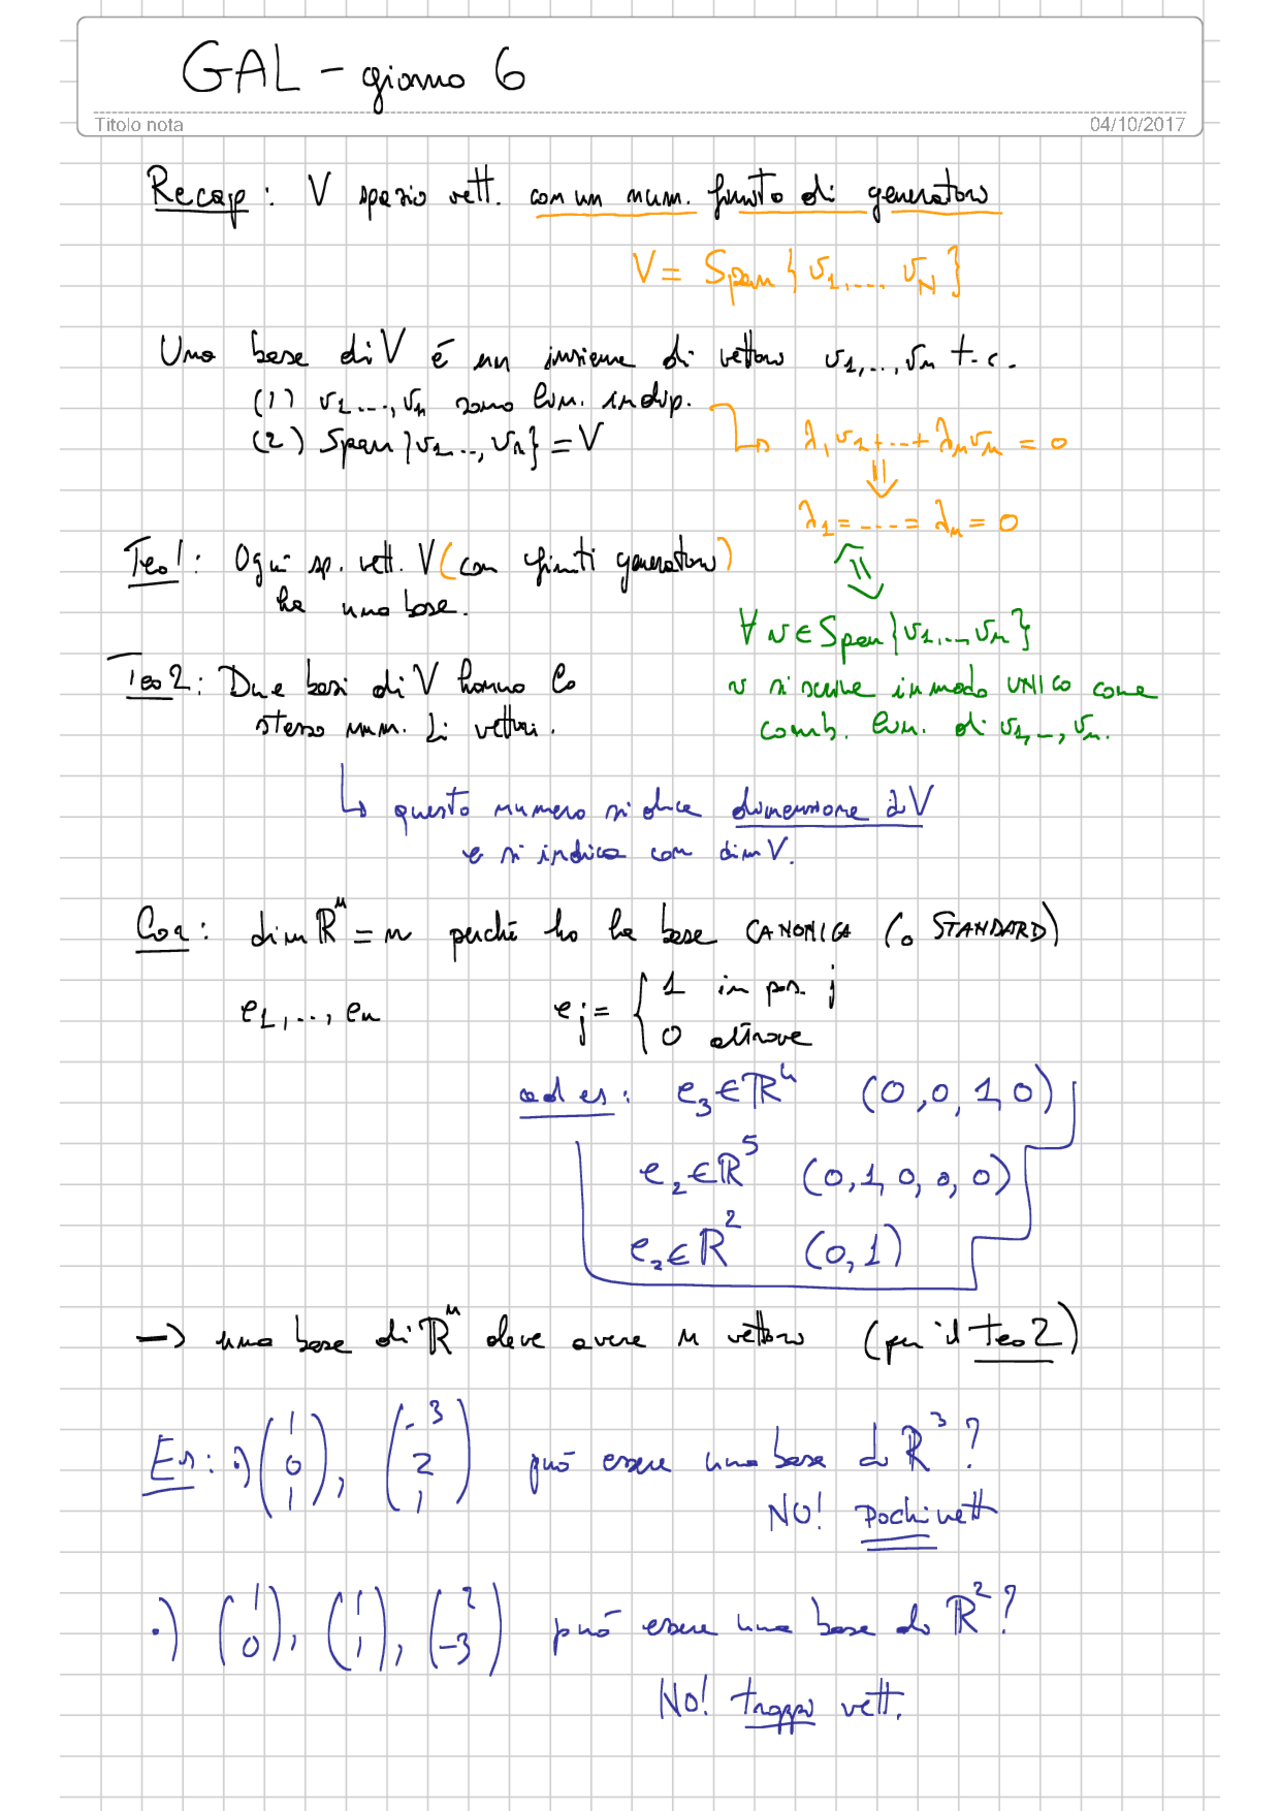 GAL - giorno 6
Titolo nota
04/10/2017
Recap: V spazio vett. con un num. finito di generatori
V = Span{v₁,... v_N}
Una base di V é un insieme di vettori v₁,..,vₙ t.c.
(1) v₁...,vₙ sono lin. indip.
↳ λ₁v₁+..+λₙvₙ = 0
(2) Span{v₁..,vₙ} = V
⇓
λ₁ = .... = λₙ = 0
Teo 1: Ogni sp. vett. V (con finiti generatori)
ha una base.
⇕
∀ v ∈ Span{v₁,..,vₙ}
v si scrive in modo UNICO come
comb. lin. di v₁,..,vₙ.
Teo 2: Due basi di V hanno lo
stesso num. di vettori.
↳ questo numero si dice dimensione di V
e si indica con dim V.
Cor: dim ℝⁿ = n perché ho la base CANONICA (o STANDARD)
e₁,..,eₙ   e_j = { 1 in pos. j
0 altrove
ad es: e₃ ∈ ℝ⁴ (0,0,1,0)
e₂ ∈ ℝ⁵ (0,1,0,0,0)
e₂ ∈ ℝ² (0,1)
→ una base di ℝⁿ deve avere n vettori (per il teo 2)
Es: •) (1 0 1), (-3 2 1) può essere una base di ℝ³?
NO! Pochi vett
•) (1 0), (1 1), (2 -3) può essere una base di ℝ²?
NO! troppi vett.